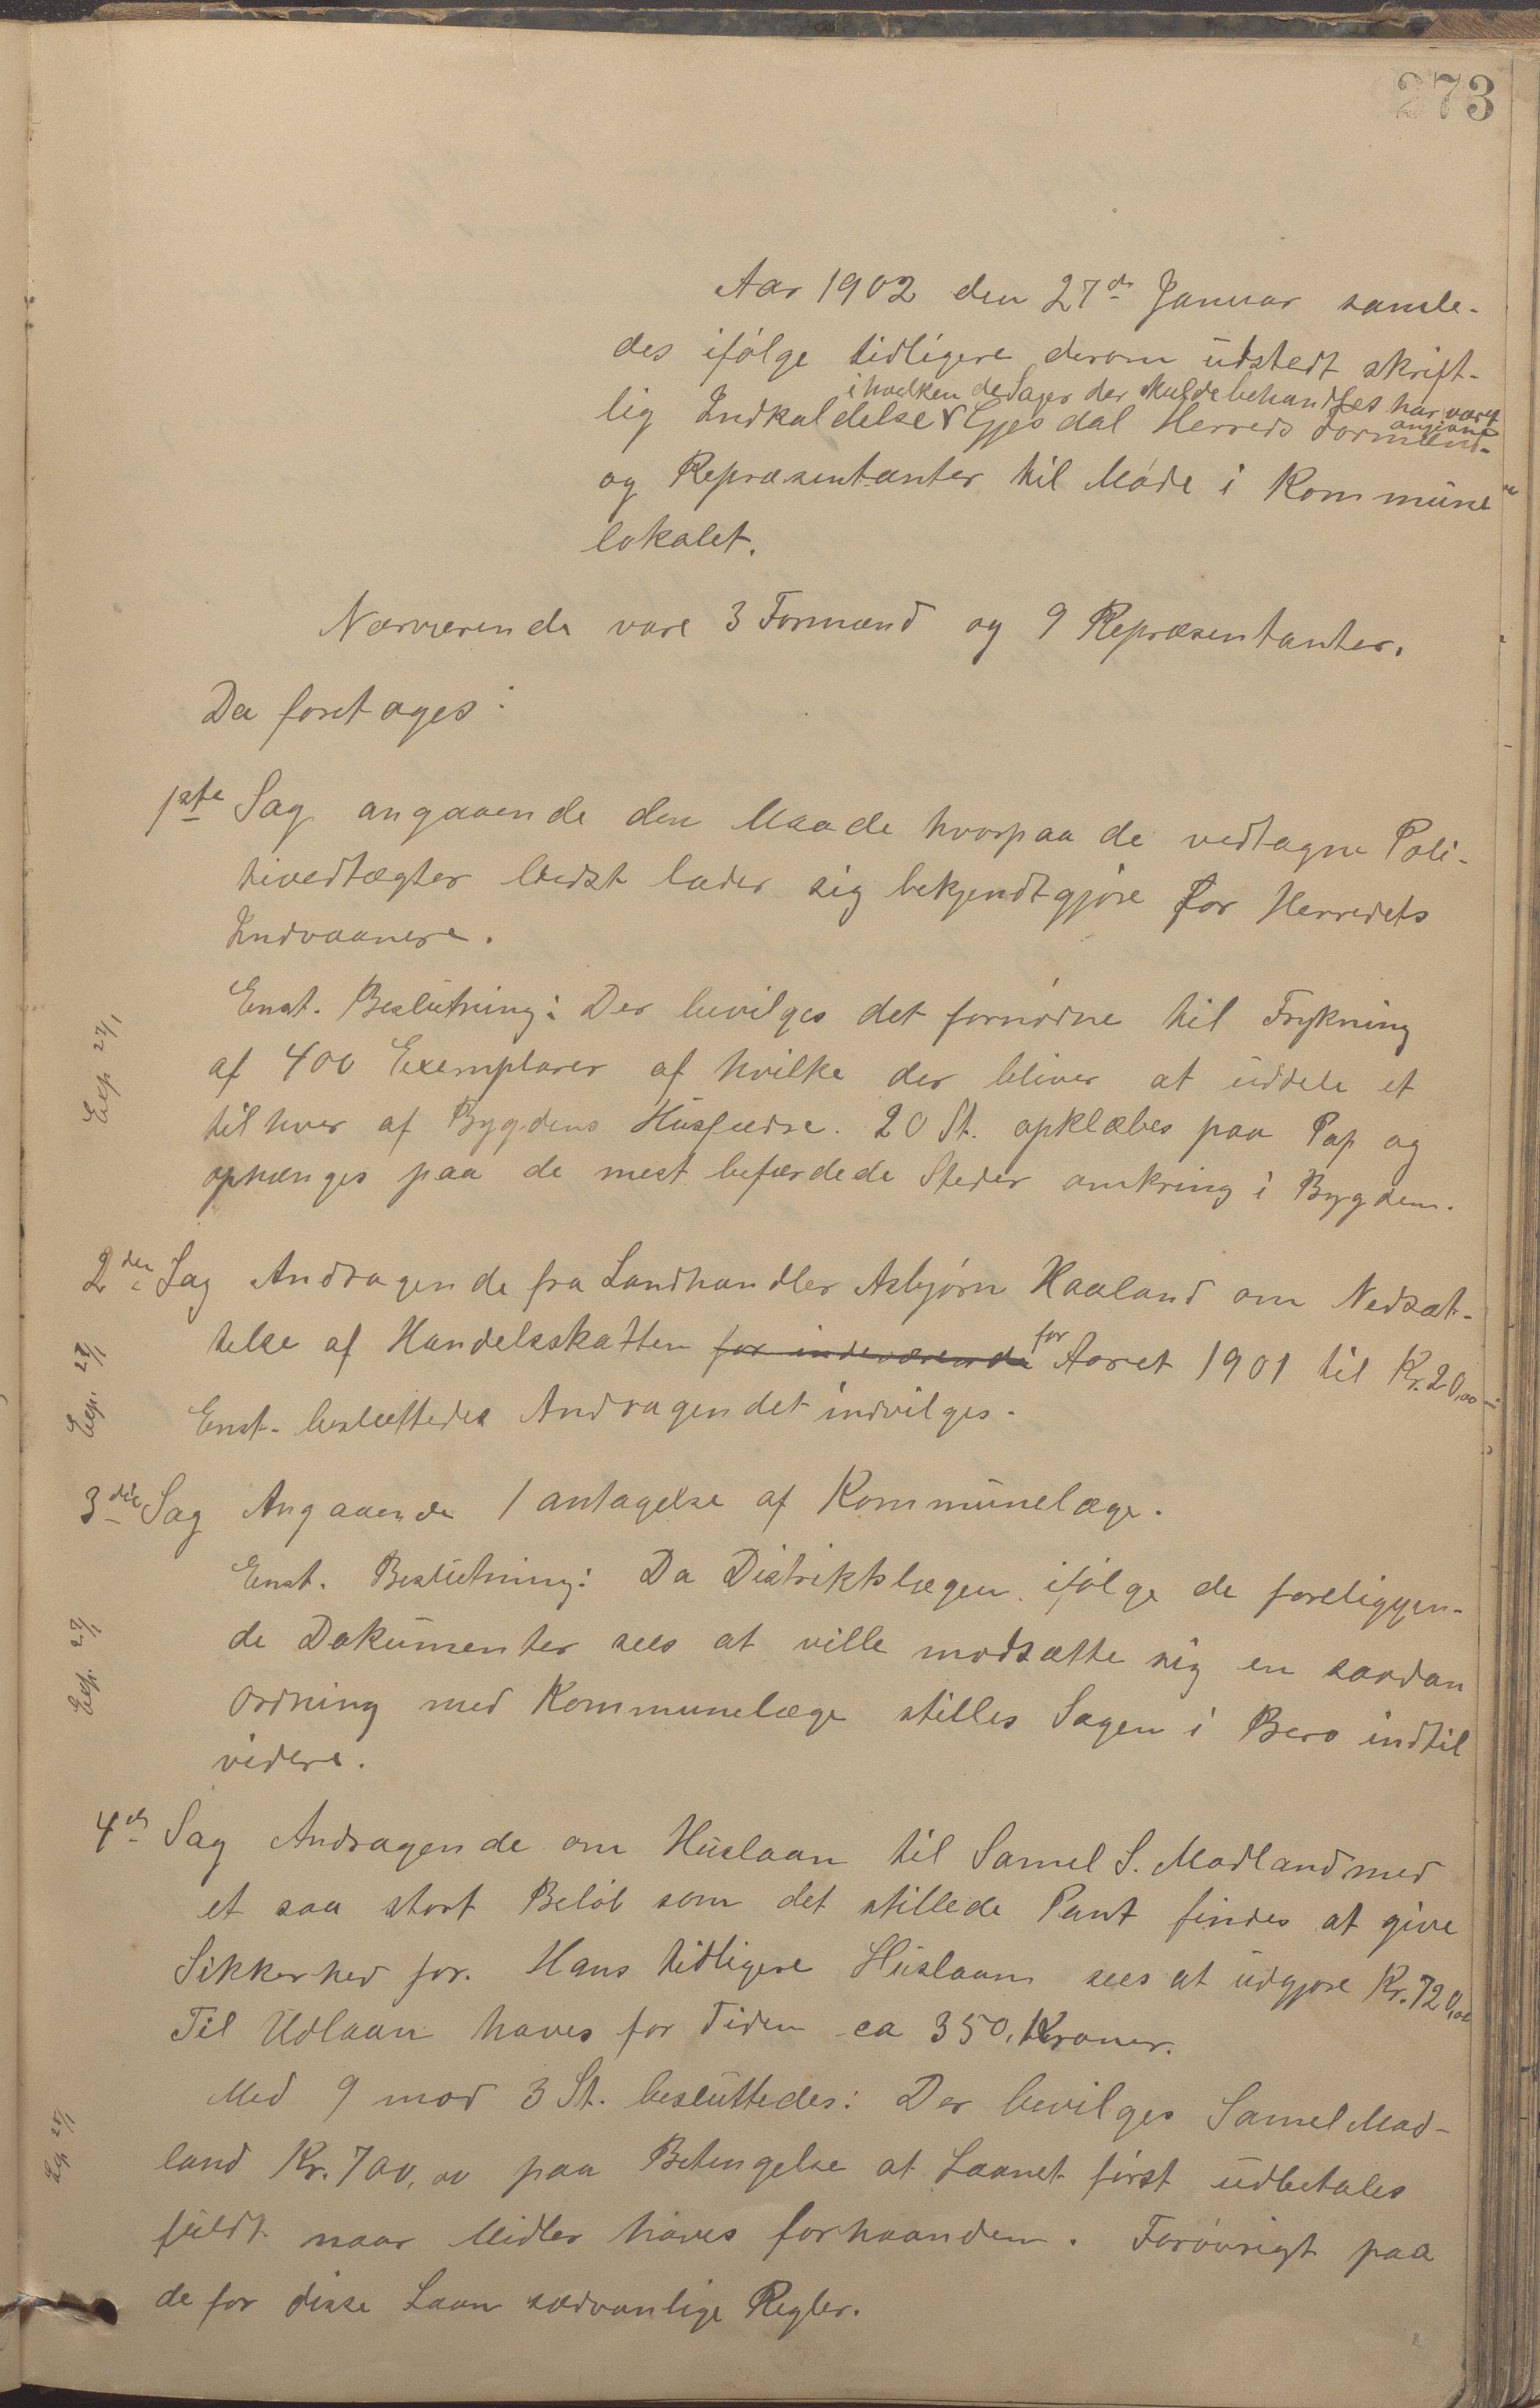 273
Aar 1902 den 27de Januar samle-
des ifølge tidligere derom udstedt skrift-
i hvilken de Sager der skulde behandles har været
angivne
lig Indkaldelse Gjesdal Herreds Formænd-
og Repræsentanter til Møde i Kommune
lokalet.
Nærværende vare 3 Formænd og 9 Repræsentanter.
Da foretages:
1ste Sag angaaende den Maade hvorpaa de vedtagne Poli-
tivedtægter bedst lader sig bekjendtgjøre for Herredets
Indvaanere.
Enst. Beslutning: Der bevilges det fornødne til Trykning
Exp 27/1
af 400 Exemplarer af hvilke der bliver at uddele et
til hver af Bygdens Husfædre. 20 St. opklæbes paa Pap og
ophænges paa de mest befærdede Steder omkring i Bygden.
2den Sag Andragende fra Landhandler Asbjørn Haaland om Nedsæt-
telse af Handelsskatten for indeværende for Aaret 1901 til Kr. 20,00
Exp. 27/1
Enst. besluttedes Andragendet indvilges.
3die Sag Angaaende Antagelse af Kommunelæge.
Enst. Beslutning: Da Distriktslægen ifølge de foreliggen-
de Dokumenter sees at ville modsætte sig en saadan
Exp. 27/1
Ordning med Kommunelæge stilles Sagen i Bero indtil
videre.
4de Sag Andragende om Huslaan til Samel S. Madland med
et saa stort Beløb som det stillede Pant findes at give
Sikkerhed for. Hans tidligere Huslaan sees at udgjøre Kr. 720,00
Til Udlaan haves for Tiden ca 350, Kroner.
Med 9 mod 3 St. besluttedes: Der bevilges Samel Mad-
Exp 28/1
land Kr. 700,00 paa Betingelse at Laanet først udbetales
fuldt naar Midler haves forhaanden. Forøvrigt paa
de for disse Laan sædvanlige Regler.